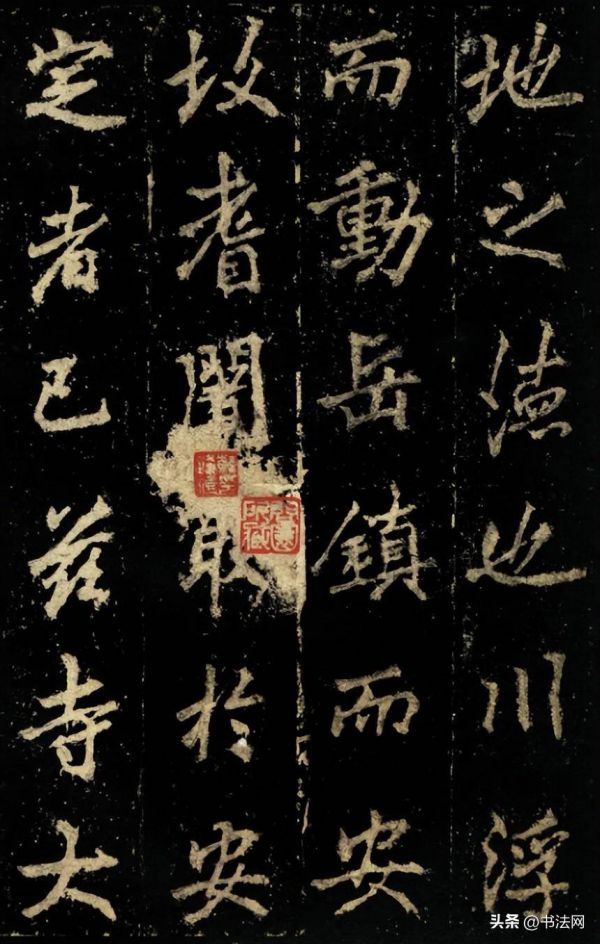 地之德也川浮
而動岳鎮而安
故耆闍取於安
定者已兹寺大
头条 @书法网